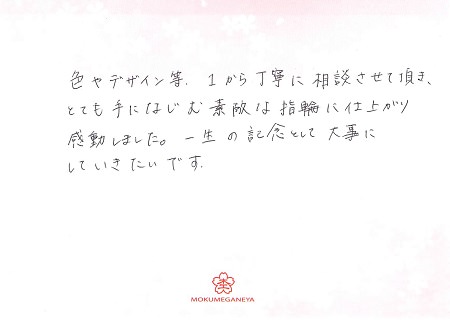 色やデザイン等、1から丁寧に相談させて頂き、
とても手になじむ素敵な指輪に仕上がり
感動しました。一生の記念として大事に
していきたいです。
MOKUMEGANEYA